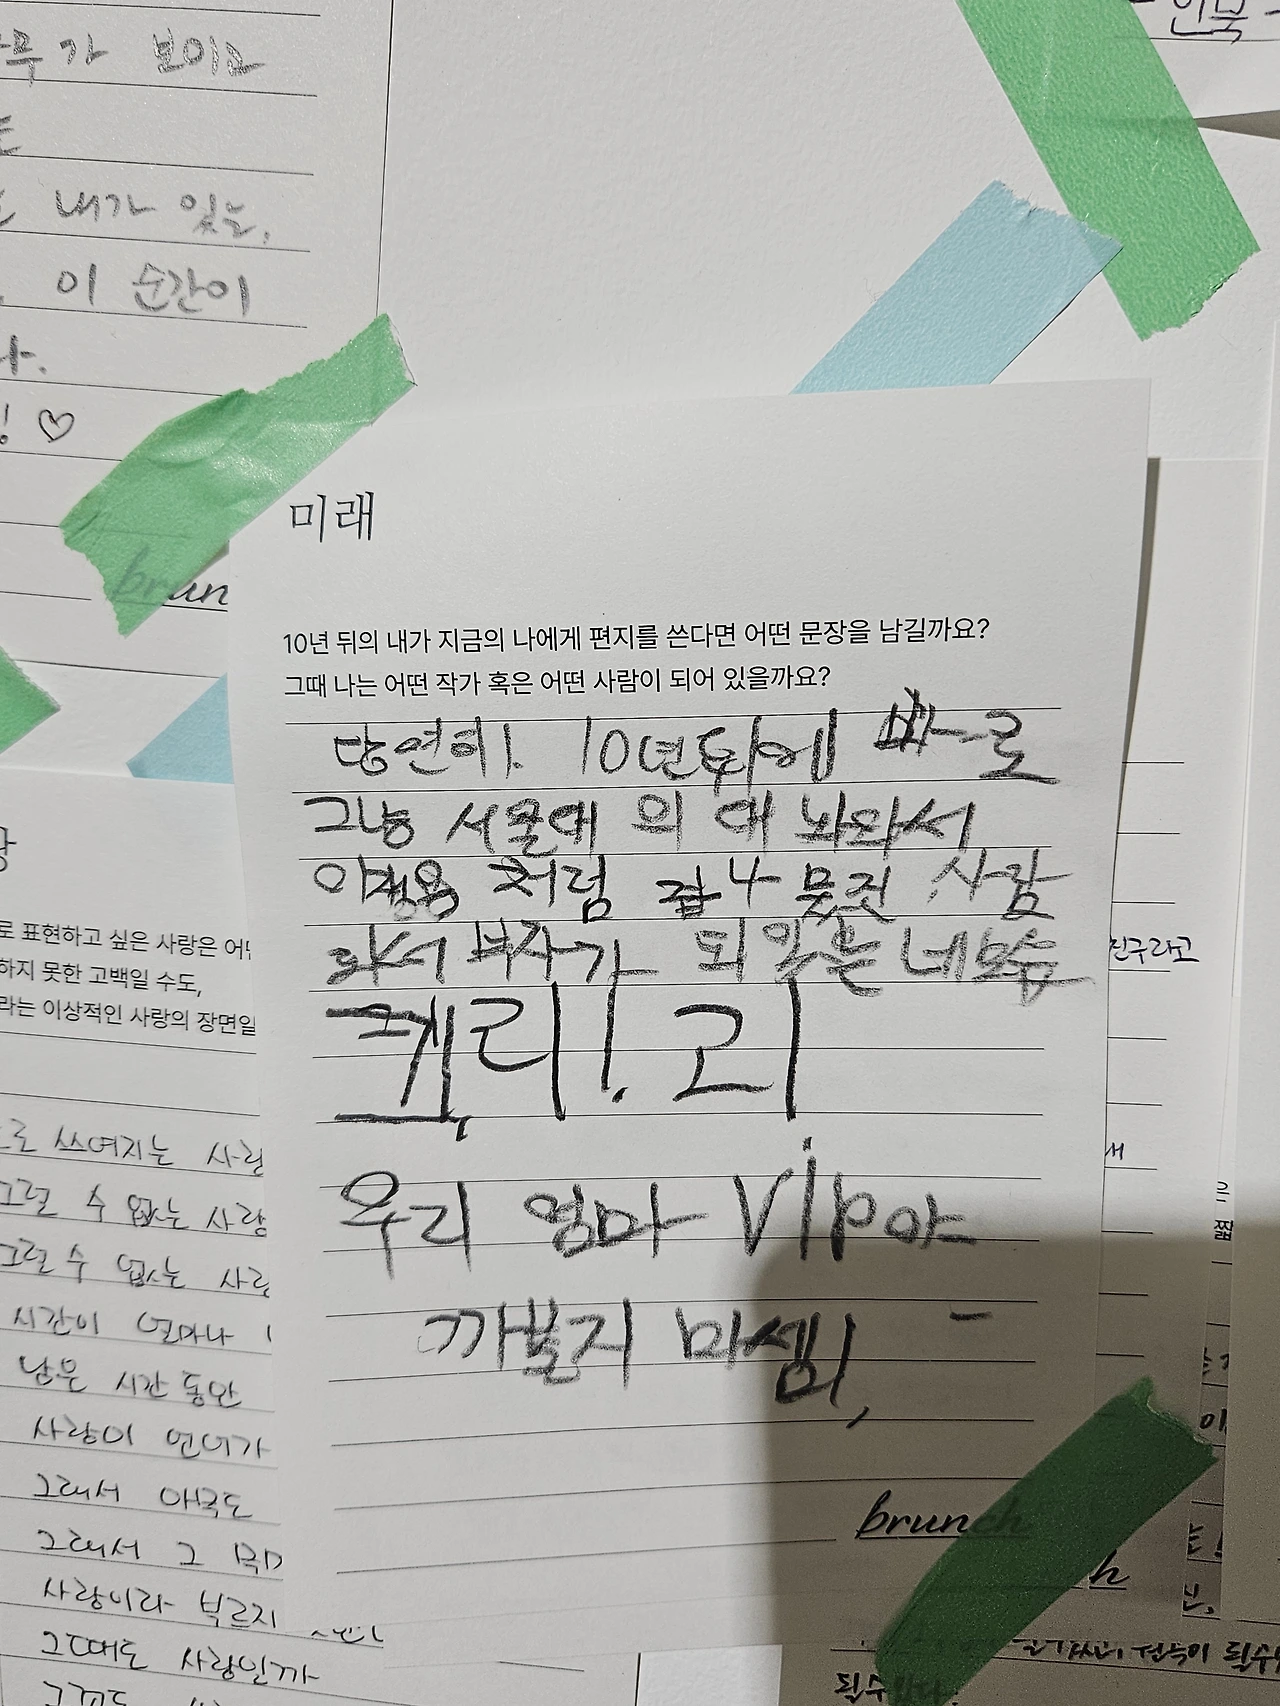 무가 보이고
내가 있는,
이 순간이
다.
♡
brun
인북
미래
10년 뒤의 내가 지금의 나에게 편지를 쓴다면 어떤 문장을 남길까요?
그때 나는 어떤 작가 혹은 어떤 사람이 되어 있을까요?
당연히! 10년뒤에 빠로
그냥 서울대 의대 놔와서
이재용 처럼 겁나 뭇진 사람
되서 부자가 되있는 네모습
캐리!. 리
우리 엄마 vip야
까불지 마셈!,
brunch
로 표현하고 싶은 사랑은 어떤
하지 못한 고백일 수도,
라는 이상적인 사랑의 장면일
로 쓰여지는 사랑
그럴 수 없는 사랑
그럴 수 없는 사랑
시간이 얼마나
남은 시간 동안
사랑이 언어가
그래서 애국도
그래서 그
사랑이라 부르지
그때도 사랑일까
친구라고
서
짧
h
될수
될수있다.